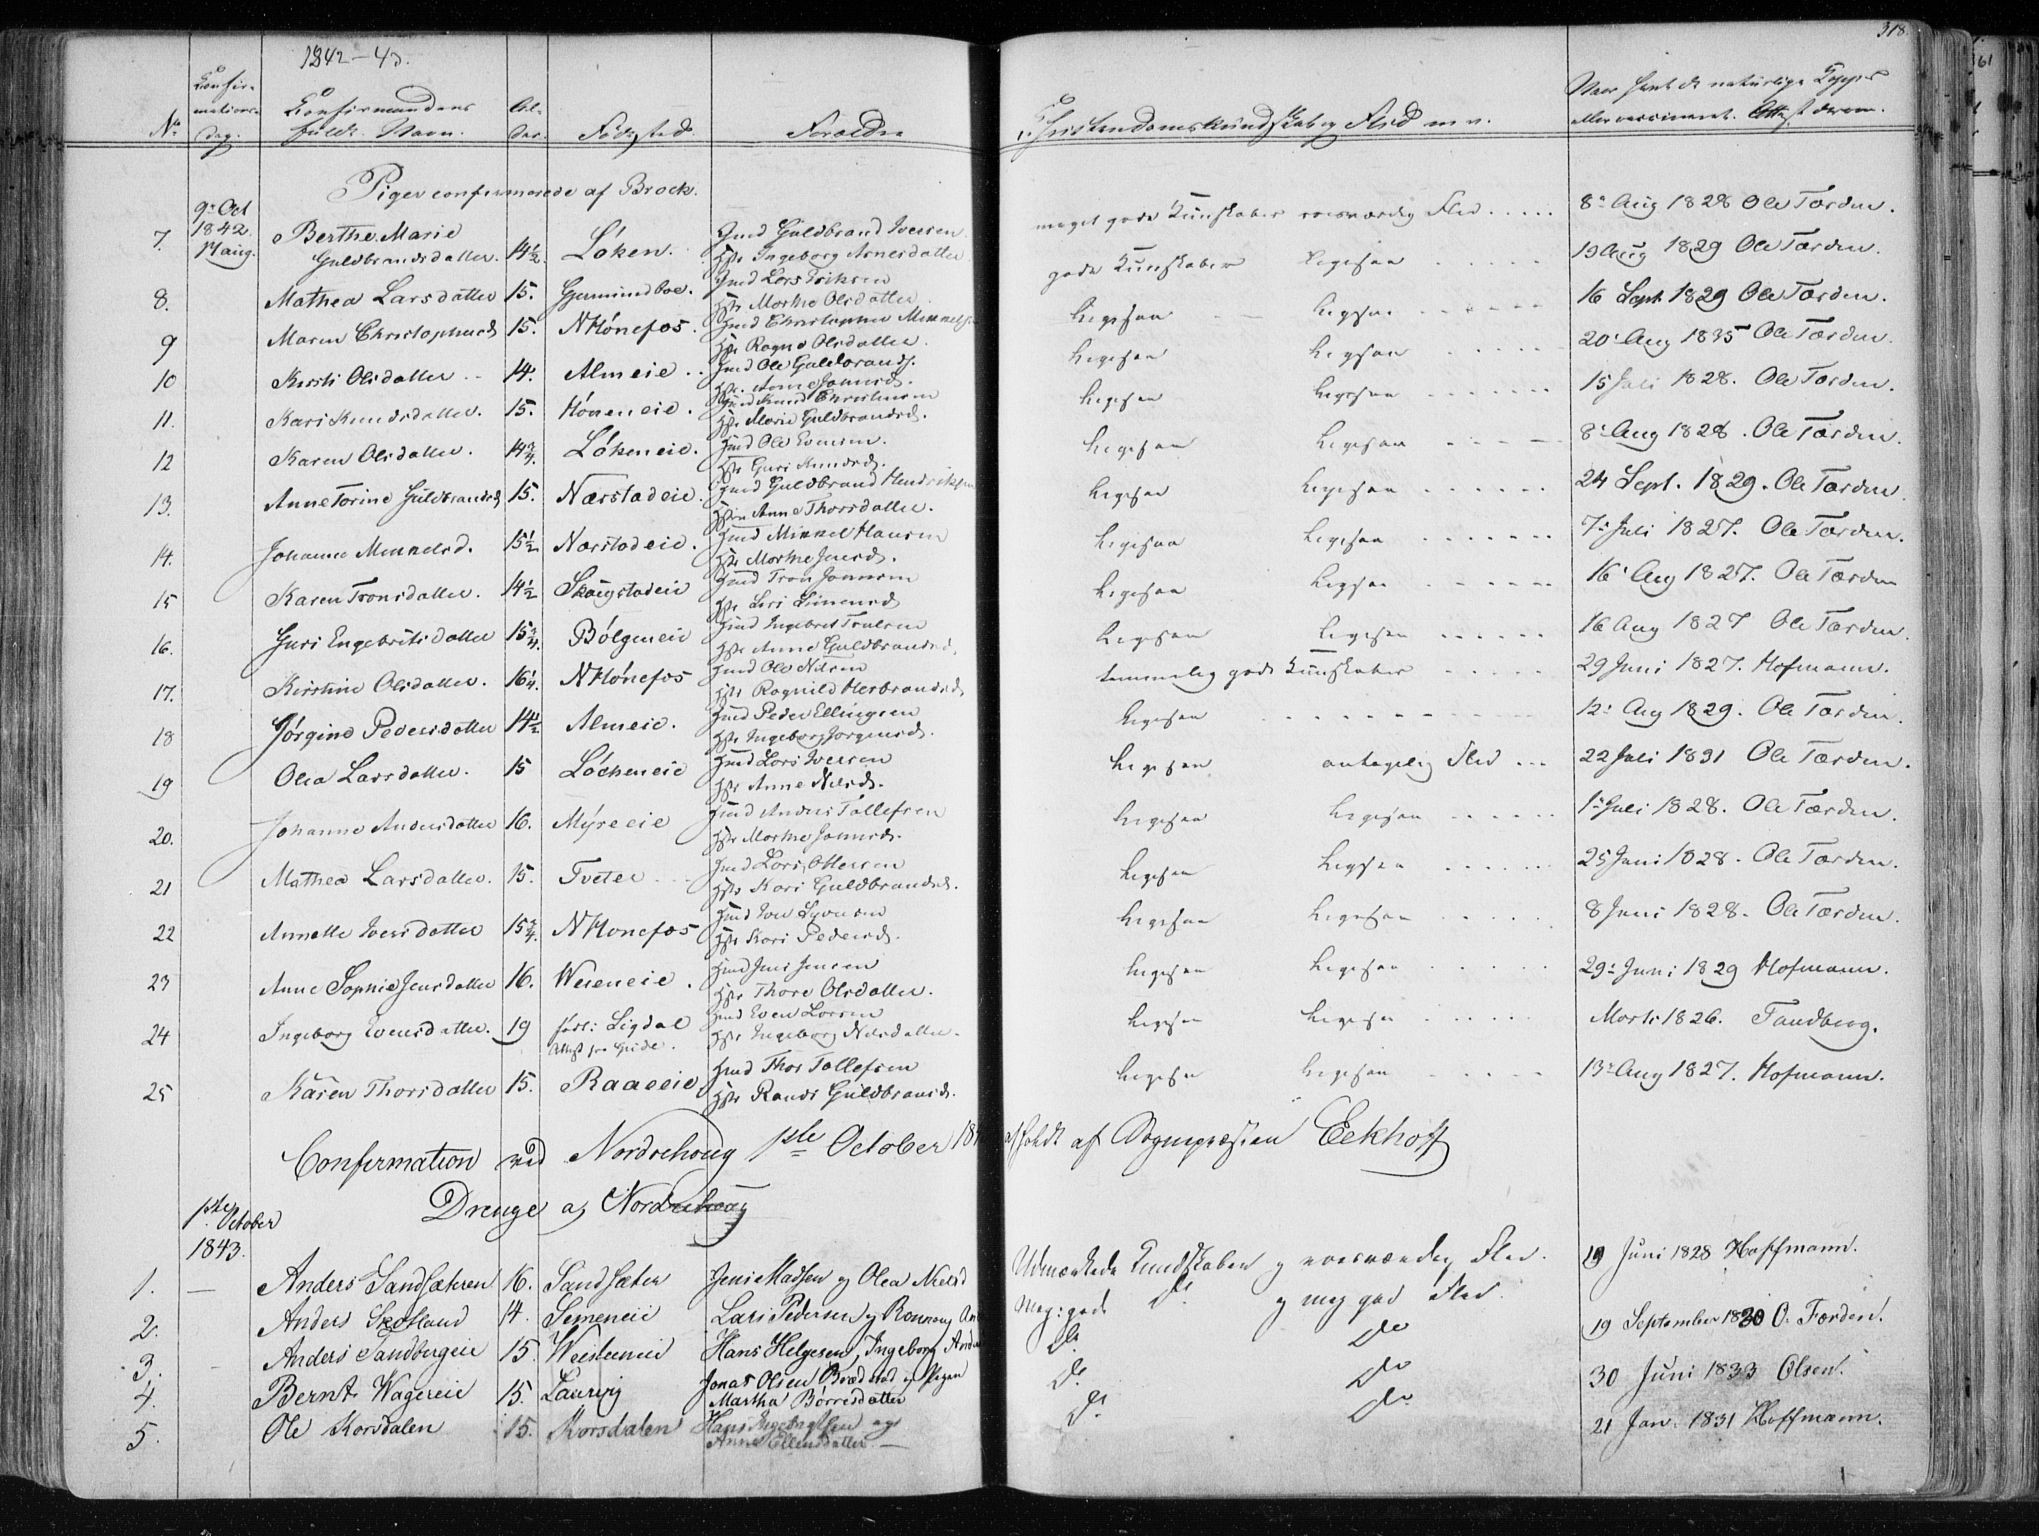 318
1842-43.
No Confirmations Dag. Confirmandens fulde Navn. Alder. Fødested Forældre Christendomskundskab og Flid m. v. Naar havt de naturlige Kopper eller vaccineret. Attest derom.
Piger confirmerede af Brock.
9de Oct 1842
7. Berthe Marie Guldbrandsdatter. 14½ Løken. Hmd Guldbrand Iversen Hstr Ingeborg Arnesdatter meget gode Kundskaber roesværdig Flid ..... 8de Aug 1828 Ole Tærden.
8. Mathea Larsdatter 15. Gjermundboe. Hmd Lars Eriksen Hstr Marthe Olsdatter gode Kundskaber ligesaa ..... 19 Aug 1829 Ole Tærden.
9 Maren Christophersd 15. N Hønefos. Hmd Christopher Mikkels Hstr Ragne Olsdatter. ligesaa ligesaa 16 Sept. 1829 Ole Tærden.
10 Kersti Olsdatter 14. Almeie .. Hmd Ole Guldbrands. Hstr. Anne Jonsd. ligesaa ligesaa ..... 20. Aug 1835 Ole Tærden.
11. Kari Knudsdatter. 15. Høneneie. Hmd Knud Christensen Hstr Marie Guldbrandsd. ligesaa ligesaa ..... 15 Juli 1828. Ole Tærden.
12 Karen Olsdatter. 14¾. Løkeneie. Hmd Ole Evensen. Hstr Guri Amundsd. ligesaa ligesaa 8de Aug 1828. Ole Tærden.
13. Anne Torine Guldbrandsd 15. Nærstadeie. Hmd Guldbrand Hendriksen Hstr Anne Thorsdatter. ligesaa ligesaa ..... 24 Sept. 1829. Ole Tærden.
14. Johanne Mikkelsd. 15½ Nærstadeie. Hmd Mikkel Hansen Hstr Marthe Jensd. ligesaa ligesaa ..... 7de Juli 1827. Ole Tærden.
15 Karen Tronsdatter. 14½ Skougstadeie Hmd Tron Jonsen Hstr Siri Simensd ligesaa ligesaa ..... 16 Aug 1827. Ole Tærden
16. Guri Engebretsdatter 15¾. Bølgeneie Hmd Ingebret Truelsen Hstr Anne Guldbrandsd. ligesaa ligesaa ..... 16 Aug 1827 Ole Tærden.
17. Kirstine Olsdatter. 16¼. N Hønefos Hmd Ole Nilsen Hstr Ragnild Herbrandsd. temmelig gode Kundskaber ..... 29 Juni 1827. Hofmann.
18 Jørgine Pedersdatter 14½ Almeie. Hmd Peder Ellingsen Hstr Ingeborg Jørgensd. ligesaa ..... 12de Aug 1829. Ole Tærden.
19 Olea Larsdatter. 15 Løcheneie Hmd Lars Iversen Hstr Anne Nilsd. ligesaa antagelig Flid ... 22 Juli 1831 Ole Tærden.
20. Johanne Andersdatter 16. Myreeie Hmd Anders Tollefsen Hstr Marthe Jonsd. ligesaa ligesaa ..... 1de Juli 1828. Ole Tærden.
21 Mathea Larsdatter. 15. Tveter Hmd Lars Ottersen Hstr Kari Guldbrandsd. ligesaa ligesaa ..... 25 Juni 1828. Ole Tærden.
22 Annette Iversdatter 15¾. N Hønefos Hmd Iver Syversen Hstr Kari Pedersd. ligesaa ligesaa ..... 8 Juni 1828. Ole Tærden.
23 Anne Sophie Jensdatter 16. Weseneie. Hmd Jens Jensen Hstr Thore Olsdatter. ligesaa ligesaa ..... 29de Juni 1829 Hofmann.
24 Ingeborg Evensdatter. 19 født i Sigdal Attest fra Hmd Even Larsen Hstr Ingeborg Nilsdatter. ligesaa ligesaa ..... Marts 1826. Tandberg.
25 Karen Thorsdatter 15. Raaeeie Hmd Thor Tollefsen Hstr Randi Guldbrandsd. ligesaa ligesaa ..... 13de Aug 1827. Hofmann.
Confirmation ved Nordrehoug 1ste October 18 afholdt af Sognepræsten Eckhoff
Drenge af Nordrehoug
1ste October 1843.
1. Anders Sandsæteren 16. Sandsæter Jens Madsen og Olea Nielsd Udmærkede Kundskaber og roesværdig Flid. 19 Juni 1828 Hoffmann.
2. Anders Skotland 14. Semeneie Lars Pedersen og Rønnoug And Meg: gode Do og meg god Flid. 19 September 1830 O. Færden.
3. Anders Tandbergeie 15. Hans Helgesen, Ingeborg Do Do 30 Juni 1833 Olsen.
4. Bernt Wagereie 15. Laurvig Jonas Olsen og Pigen Martha Børresdatter Do Do
5. Ole Korsdalen 15. Korsdalen Hans og Anne Ellensdatter Do Do 21 Jan. 1831 Hoffmann.